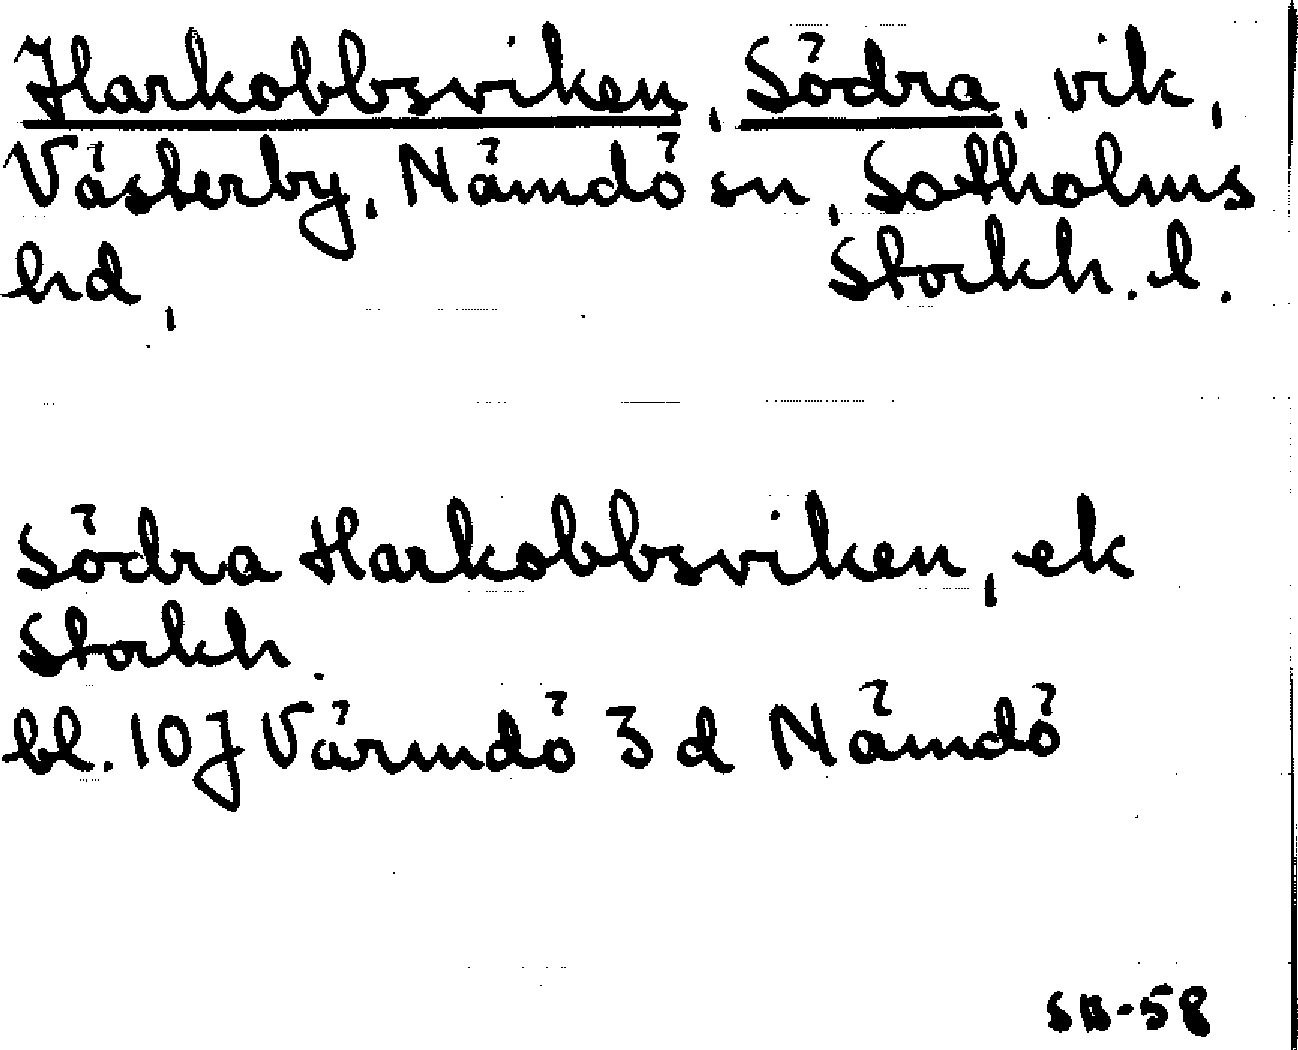 Harkobbsviken, Södra, vik,
Västerby, Nämdö sn, Sotholms
hd, Stockh. l.
Södra Harkobbsviken, ek
Stockh.
bl. 10J Värmdö 3 d Nämdö
SB-58